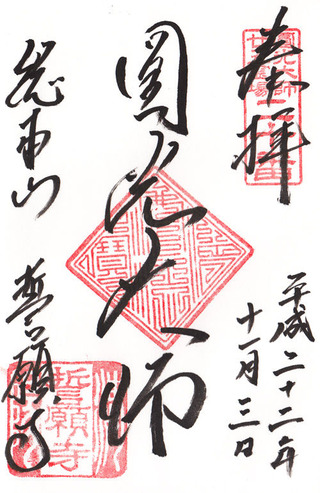 奉拝
平成二十二年
十一月三日
圓光大師
総本山
誓願寺
誓願寺